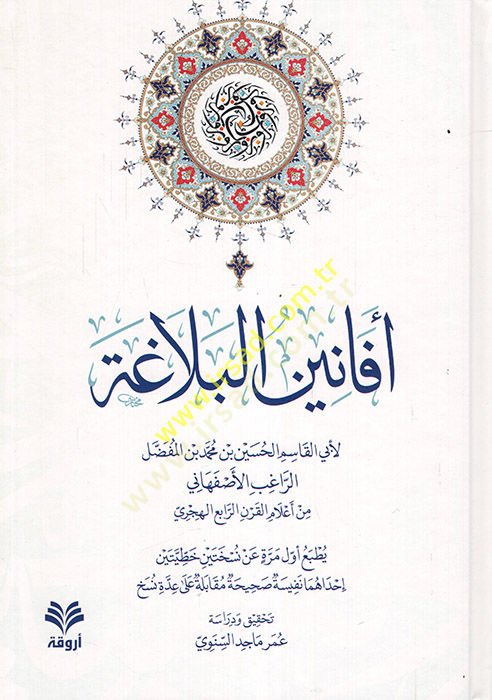 أفانين البلاغة
لأبي القاسم الحسين بن محمد بن المفضل
الراغب الأصفهاني
من أعلام القرن الرابع الهجري
يطبع أول مرة عن نسختين خطيتين
إحداهما نفيسة صحيحة مقابلة على عدة نسخ
تحقيق ودراسة
عمر ماجد السنوي
أروقة
www.irsad.com.tr